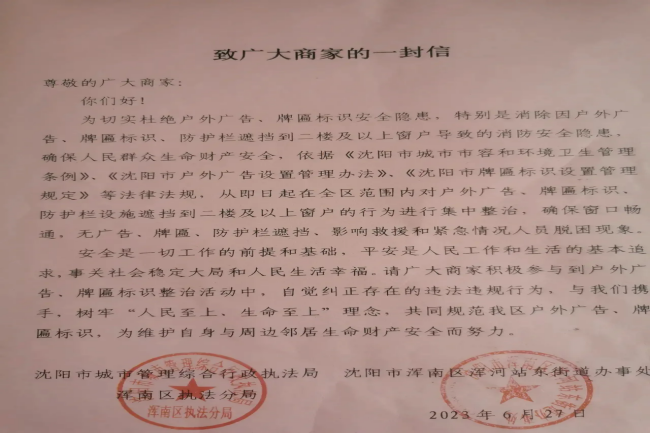 致广大商家的一封信
尊敬的广大商家：
你们好！
为切实杜绝户外广告、牌匾标识安全隐患，特别是消除因户外广
告、牌匾标识、防护栏遮挡到二楼及以上窗户导致的消防安全隐患，
确保人民群众生命财产安全，依据《沈阳市城市市容和环境卫生管理
条例》、《沈阳市户外广告设置管理办法》、《沈阳市牌匾标识设置管理
规定》等法律法规，从即日起在全区范围内对户外广告、牌匾标识、
防护栏设施遮挡到二楼及以上窗户的行为进行集中整治，确保窗口畅
通，无广告、牌匾、防护栏遮挡、影响救援和紧急情况人员脱困现象。
安全是一切工作的前提和基础，平安是人民工作和生活的基本追
求，事关社会稳定大局和人民生活幸福。请广大商家积极参与到户外广
告、牌匾标识整治活动中，自觉纠正存在的违法违规行为，与我们携
手，树牢“人民至上、生命至上”理念，共同规范我区户外广告、牌
匾标识，为维护自身与周边邻居生命财产安全而努力。
沈阳市城市管理综合行政执法局 沈阳市浑南区浑河站东街道办事处
浑南区执法分局
浑南区执法分局
2023 年 6 月 27 日